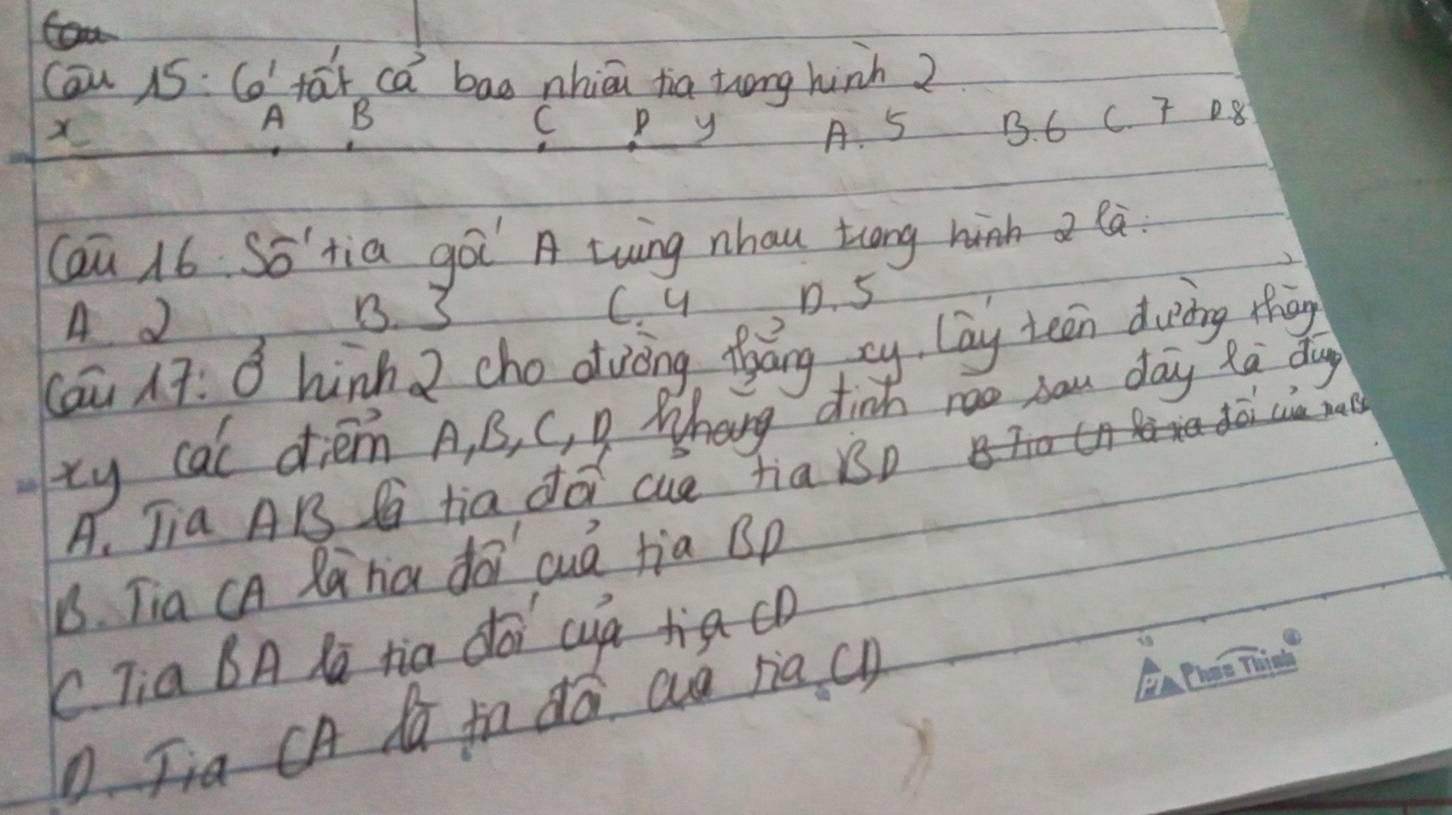 Câu 15: Có tất cả bao nhiêu tia trong hình 2
x A B C D y A. 5 B. 6 C. 7 D. 8
Câu 16: Số tia gốc A trùng nhau trong hình 2 là:
A. 2 B. 3 C. 4 D. 5
Câu 17: Ở hình 2 cho đường thẳng xy. Lấy trên đường thẳng
xy các điểm A, B, C, D. Khẳng định nào sau đây là đúng
A. Tia AB là tia đối của tia BD
B. Tia CA là tia đối của tia BD
C. Tia BA là tia đối của tia CD
D. Tia CA là tia đối của tia CD
Phúc Thịnh